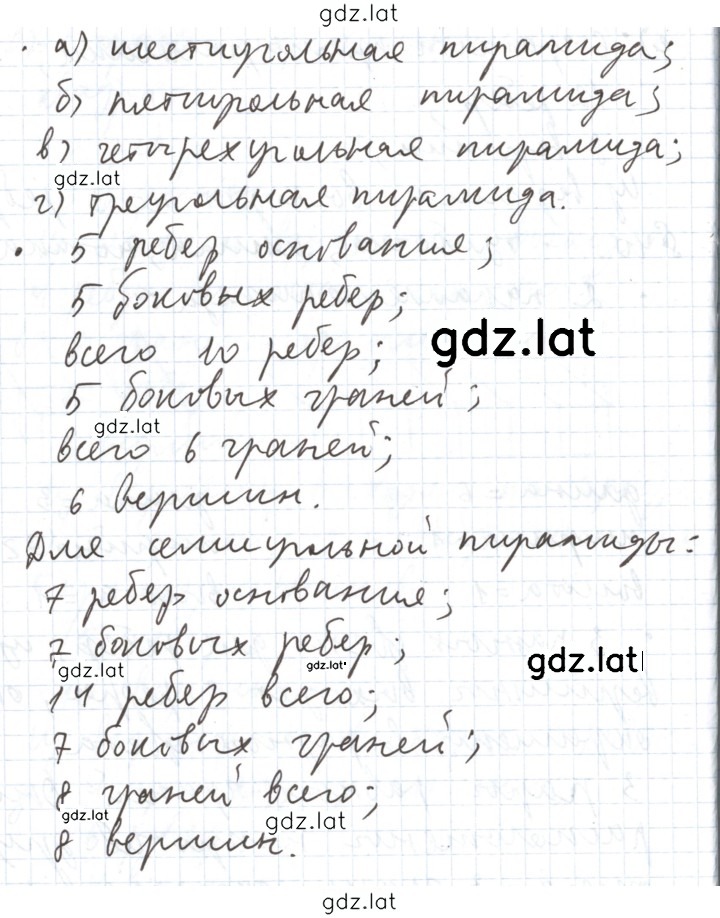 gdz.lat
· а) шестиугольная пирамида;
б) пятиугольная пирамида;
в) четырехугольная пирамида;
gdz.lat
г) треугольная пирамида.
· 5 ребер основания;
5 боковых ребер;
gdz.lat
всего 10 ребер;
5 боковых граней;
gdz.lat
всего 6 граней;
6 вершин.
Для семиугольной пирамиды:
7 ребер основания;
7 боковых ребер;
gdz.lat gdz.lat gdz.lat
14 ребер всего;
7 боковых граней;
8 граней всего;
gdz.lat gdz.lat
8 вершин.
gdz.lat